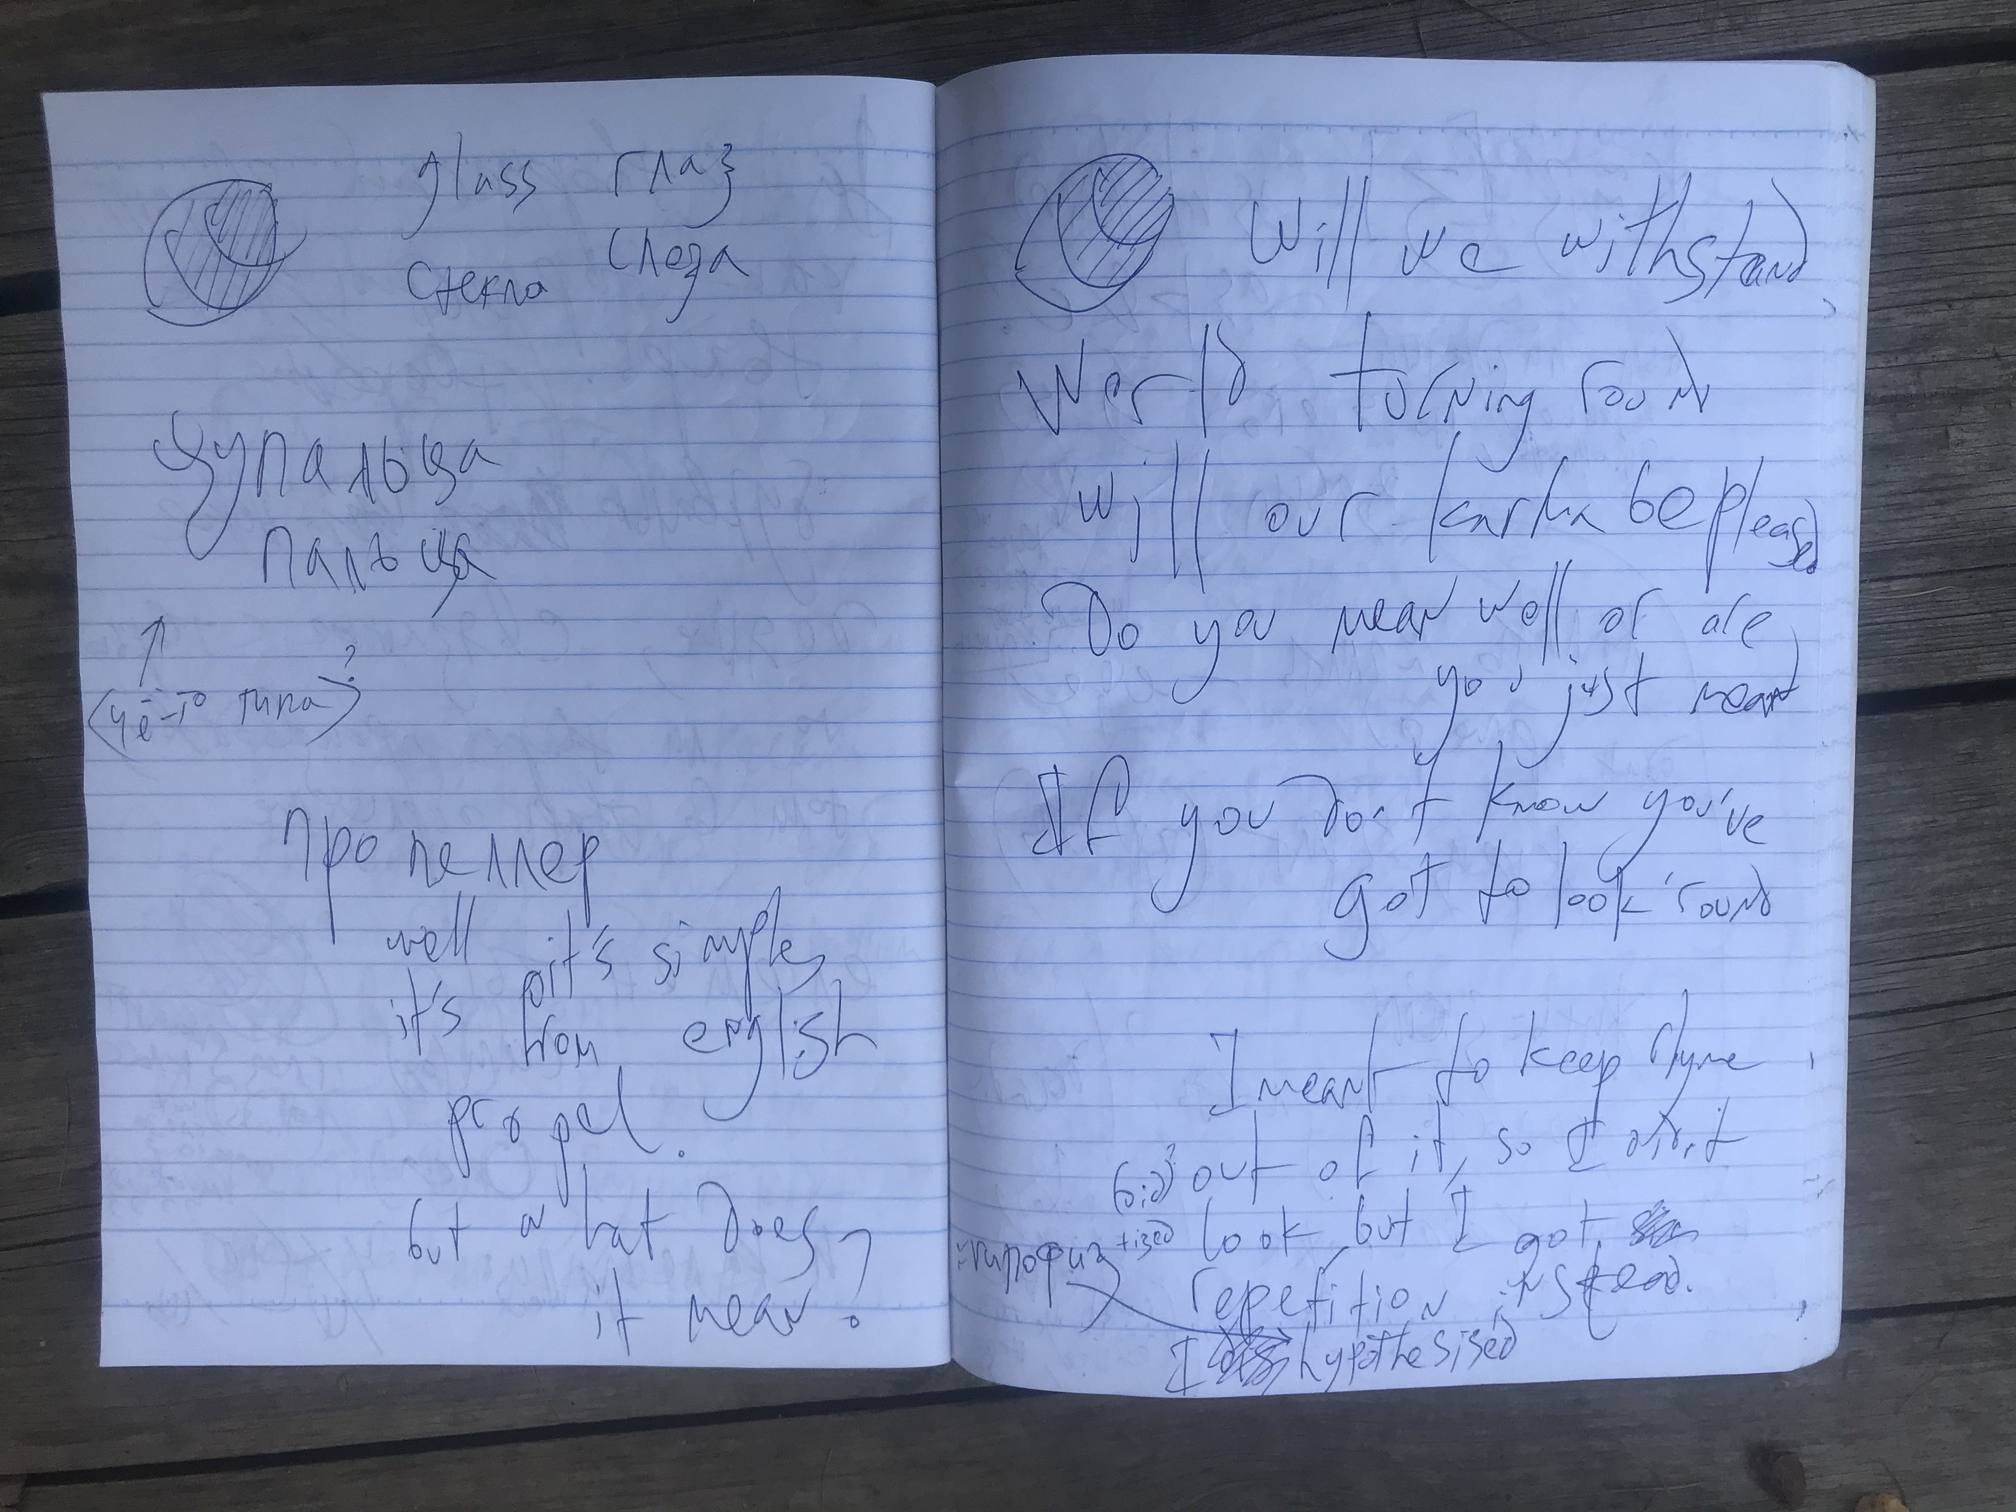 glass глаз
стекла слеза
щупальца
пальца
↑
(чё-то типа)?
пропеллер
well it's simple,
it's from english
propel.
but what does
it mean?
Will we withstand,
World turning round
will our karma be pleased
Do you mean well or are
you just mean
If you don't know you've
got to look 'round
I meant to keep rhyme
(did?) out of it, so I didn't
look but I got
repetition instead.
=гипофиз tised
I hypothesised